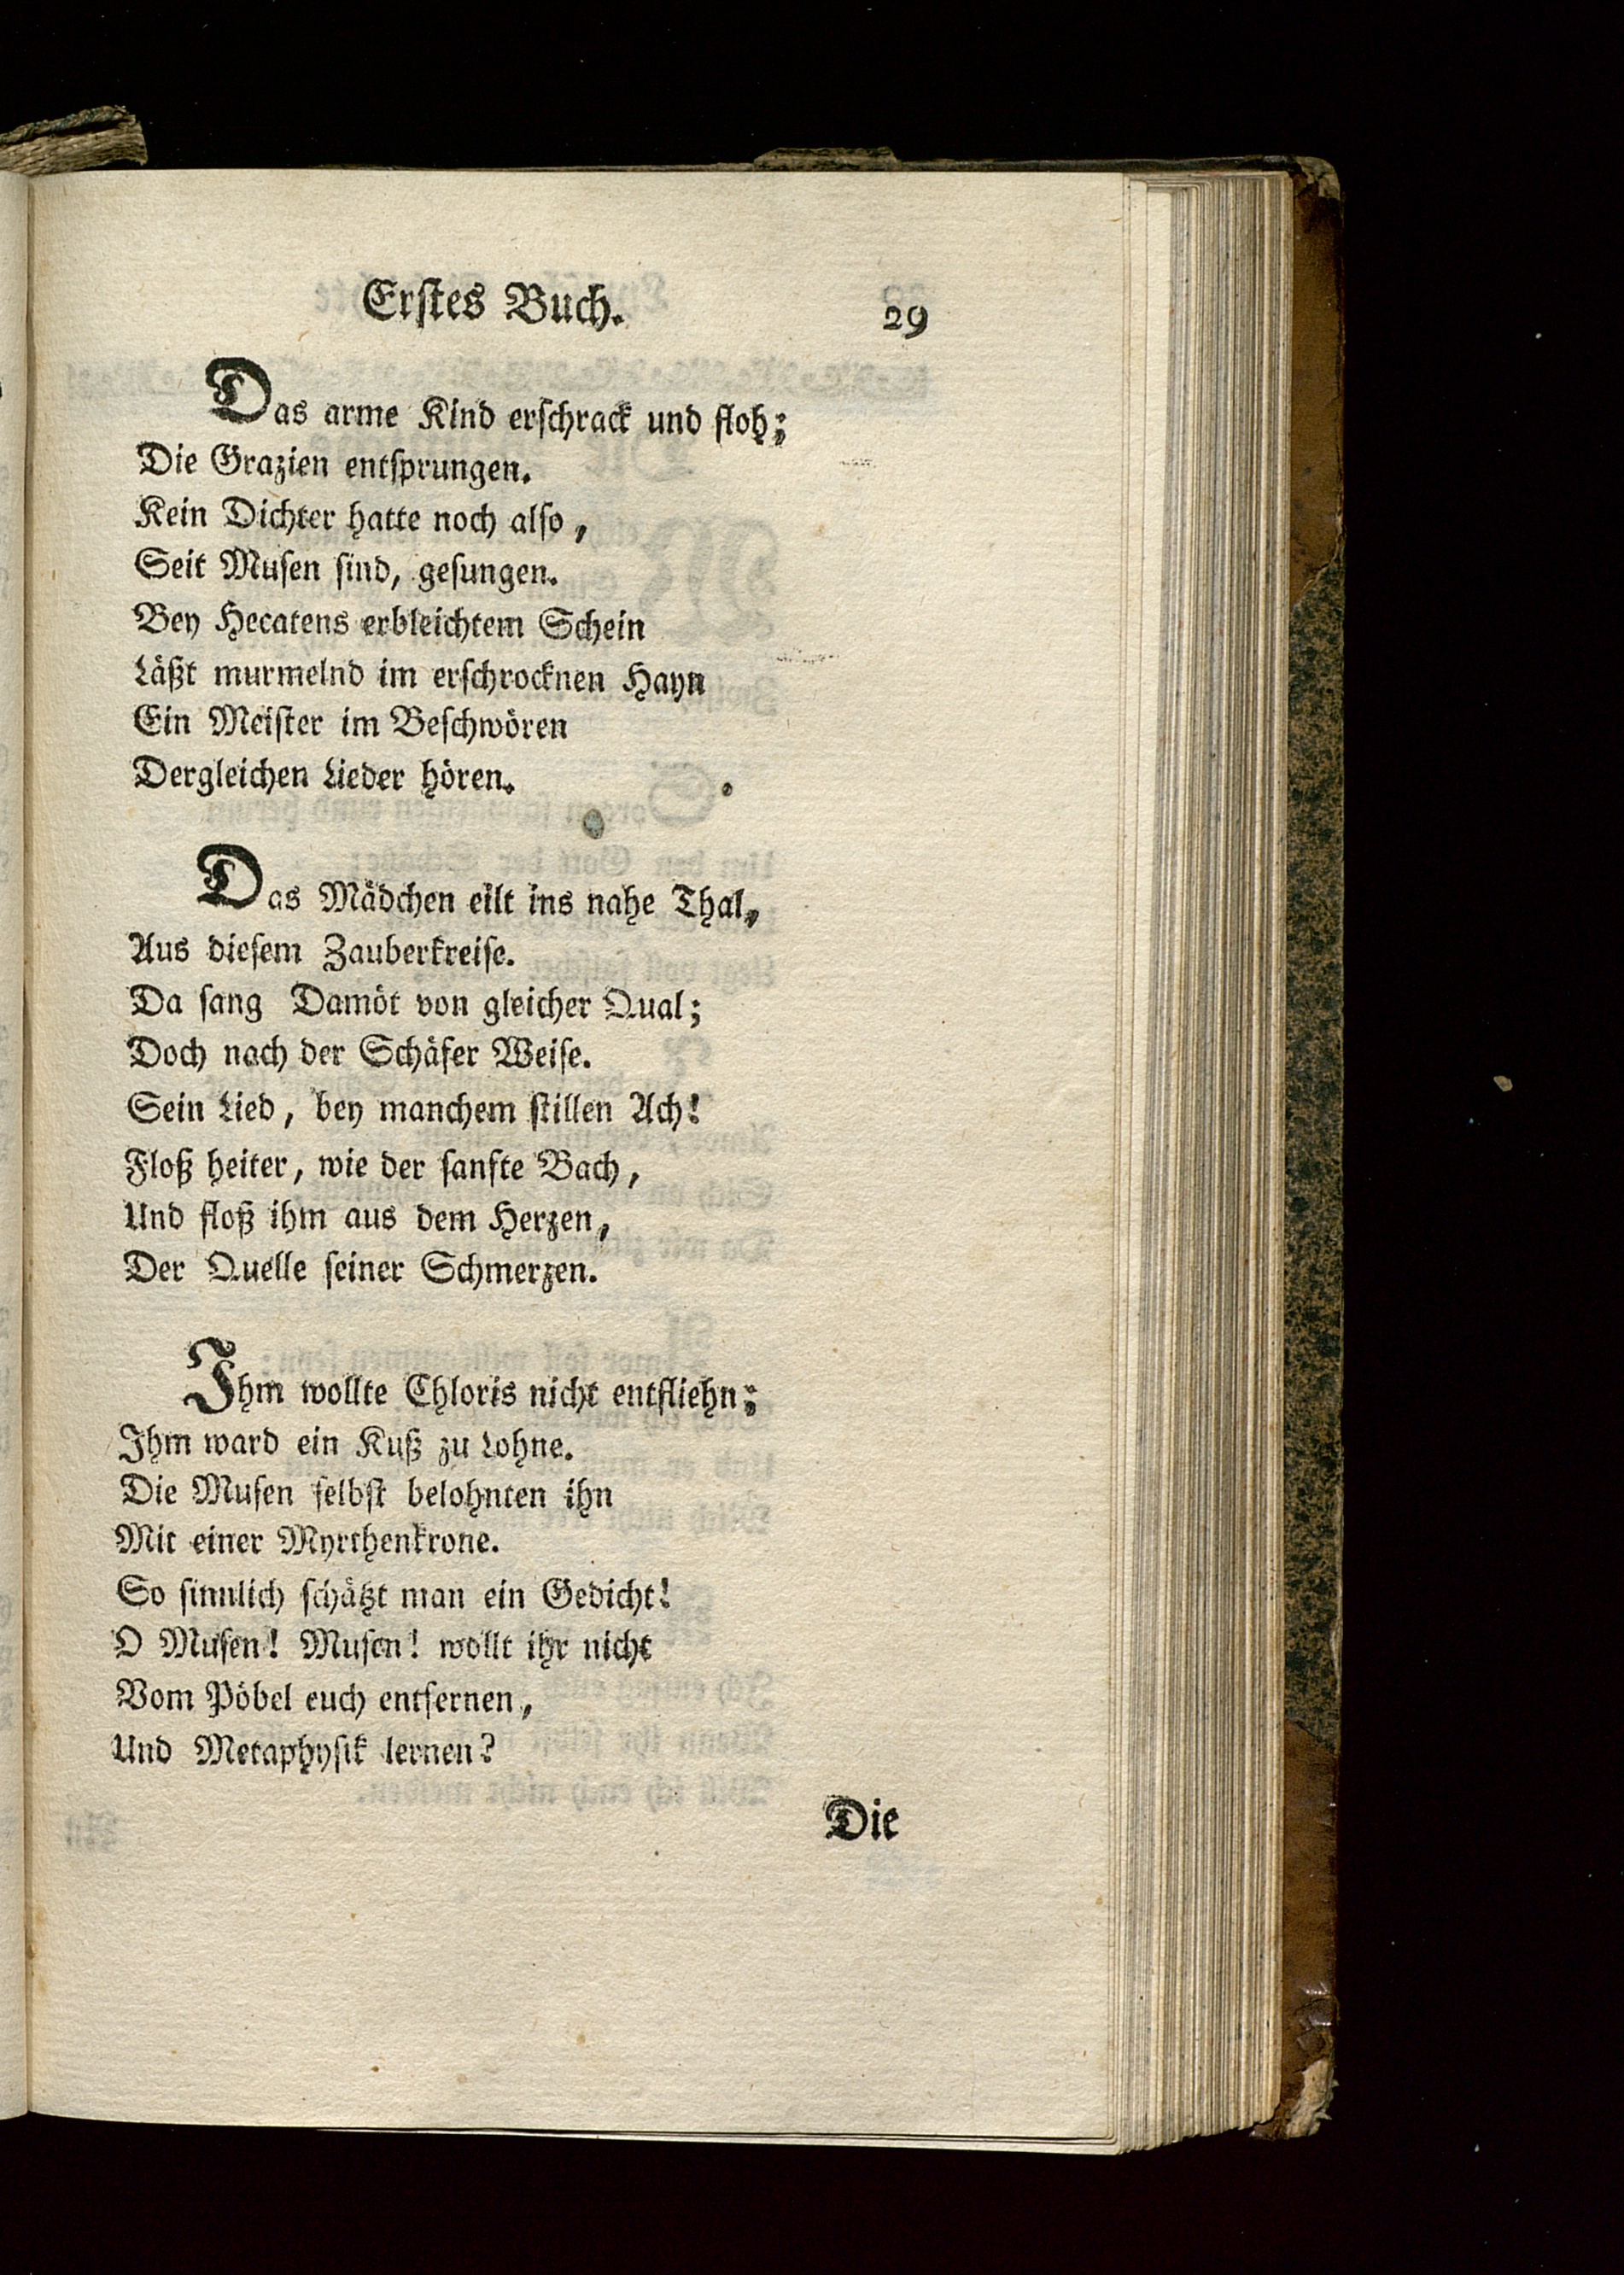 Erſtes Buch.
29
Das arme Kind erſchrack und floh;
Die Grazien entſprungen.
Kein Dichter hatte noch alſo,
Seit Muſen ſind, geſungen.
Bey Hecatens erbleichtem Schein
Läßt murmelnd im erſchrocknen Hayn
Ein Meiſter im Beſchwören
Dergleichen Lieder hören.
Das Mädchen eilt ins nahe Thal,
Aus dieſem Zauberkreiſe.
Da ſang Damöt von gleicher Qual;
Doch nach der Schäfer Weiſe.
Sein Lied, bey manchem ſtillen Ach!
Floß heiter, wie der ſanfte Bach,
Und floß ihm aus dem Herzen,
Der Quelle ſeiner Schmerzen.
Ihm wollte Chloris nicht entfliehn;
Ihm ward ein Kuß zu Lohne.
Die Muſen ſelbſt belohnten ihn
Mit einer Myrthenkrone.
So ſinnlich ſchätzt man ein Gedicht!
O Muſen! Muſen! wollt ihr nicht
Vom Pöbel euch entfernen,
Und Metaphyſik lernen?
Die